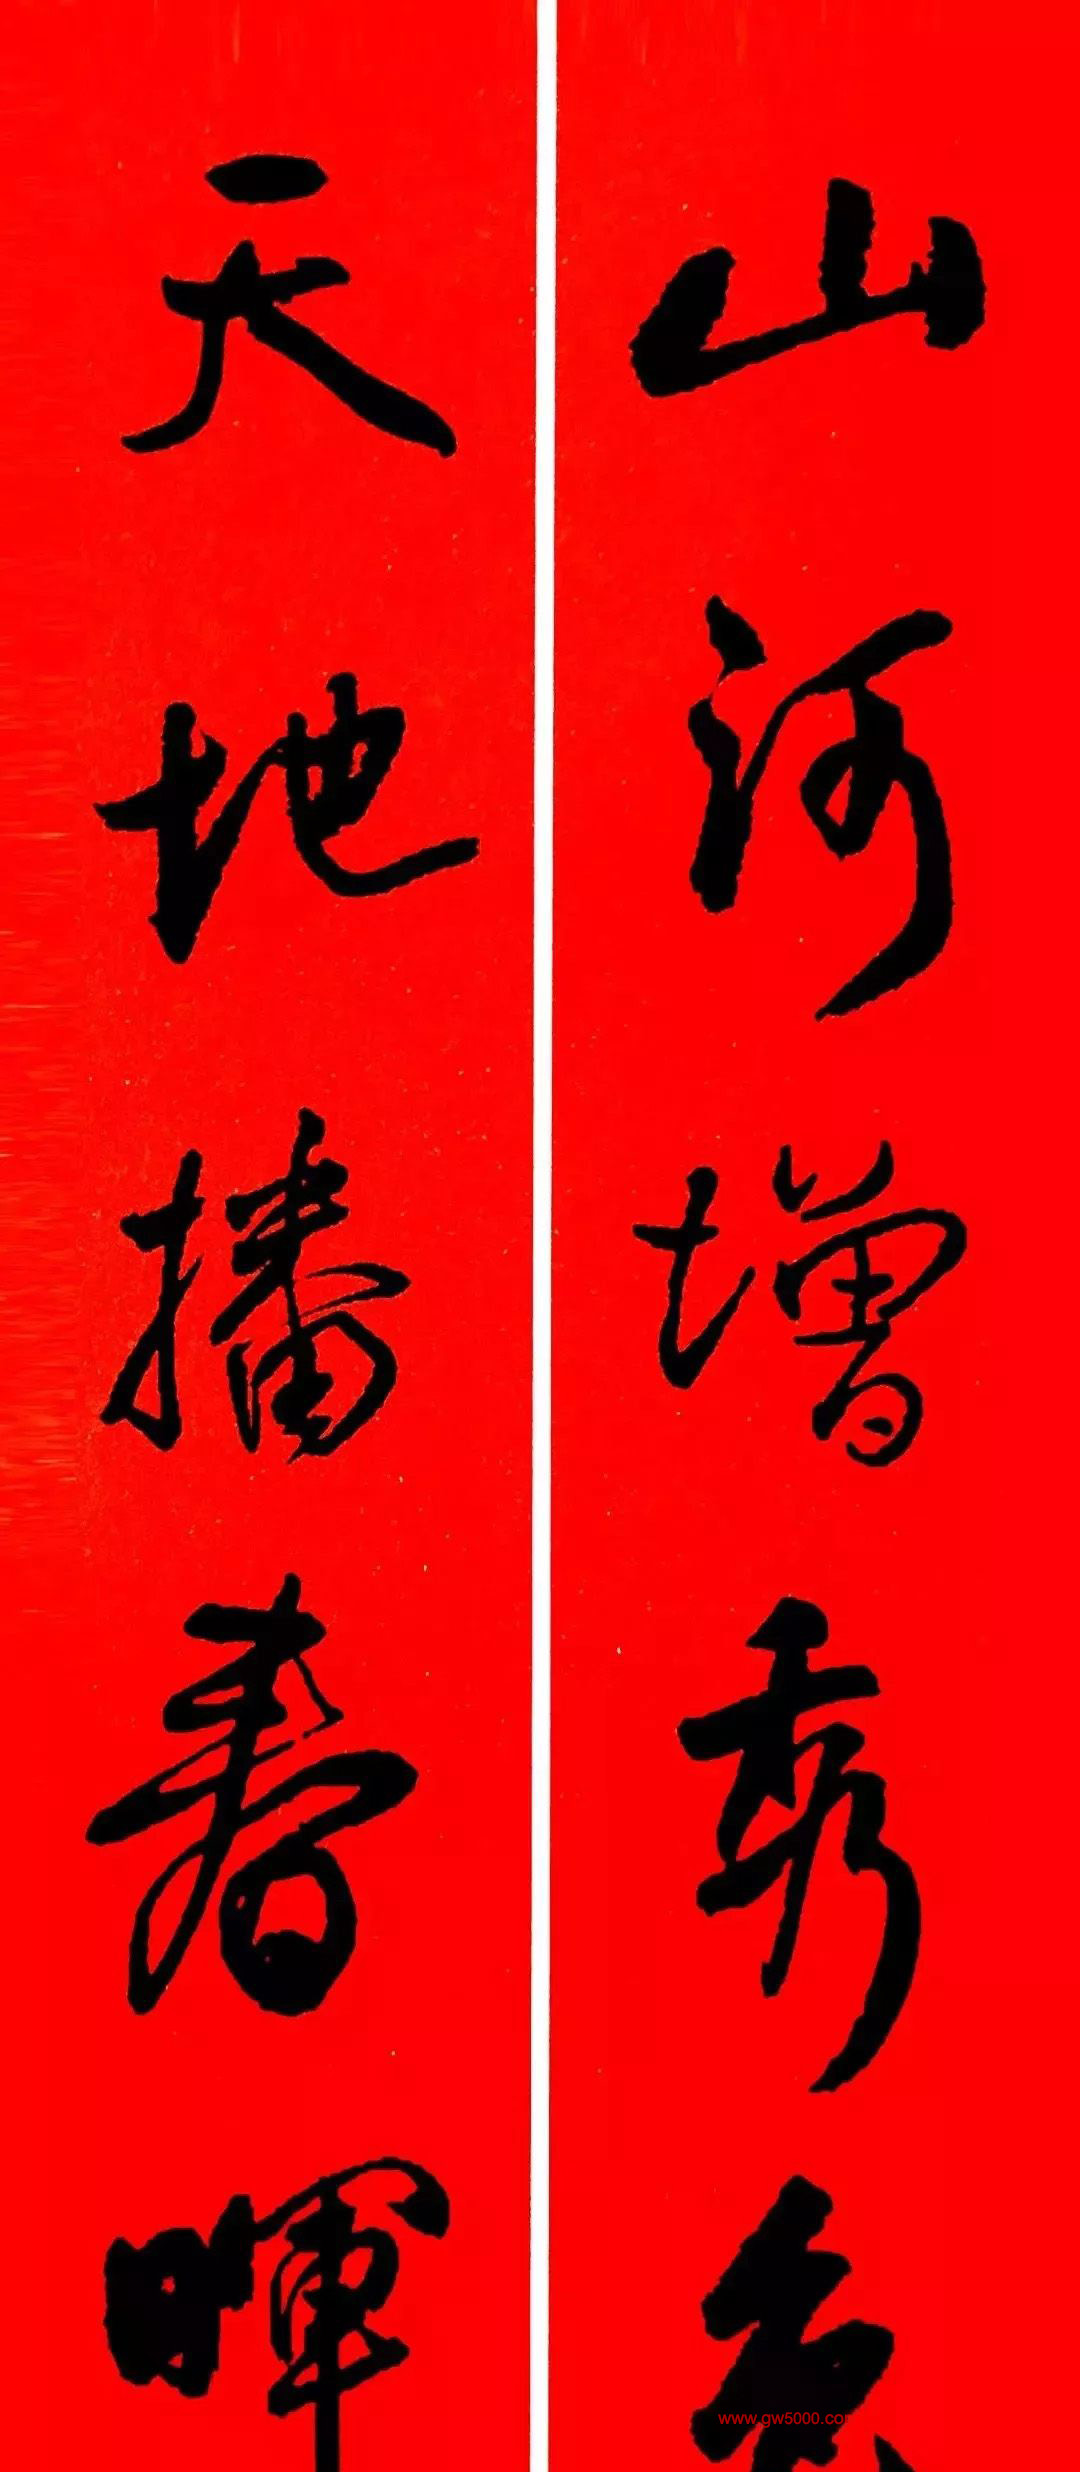 山河增秀色
天地播春晖
www.gw5000.com